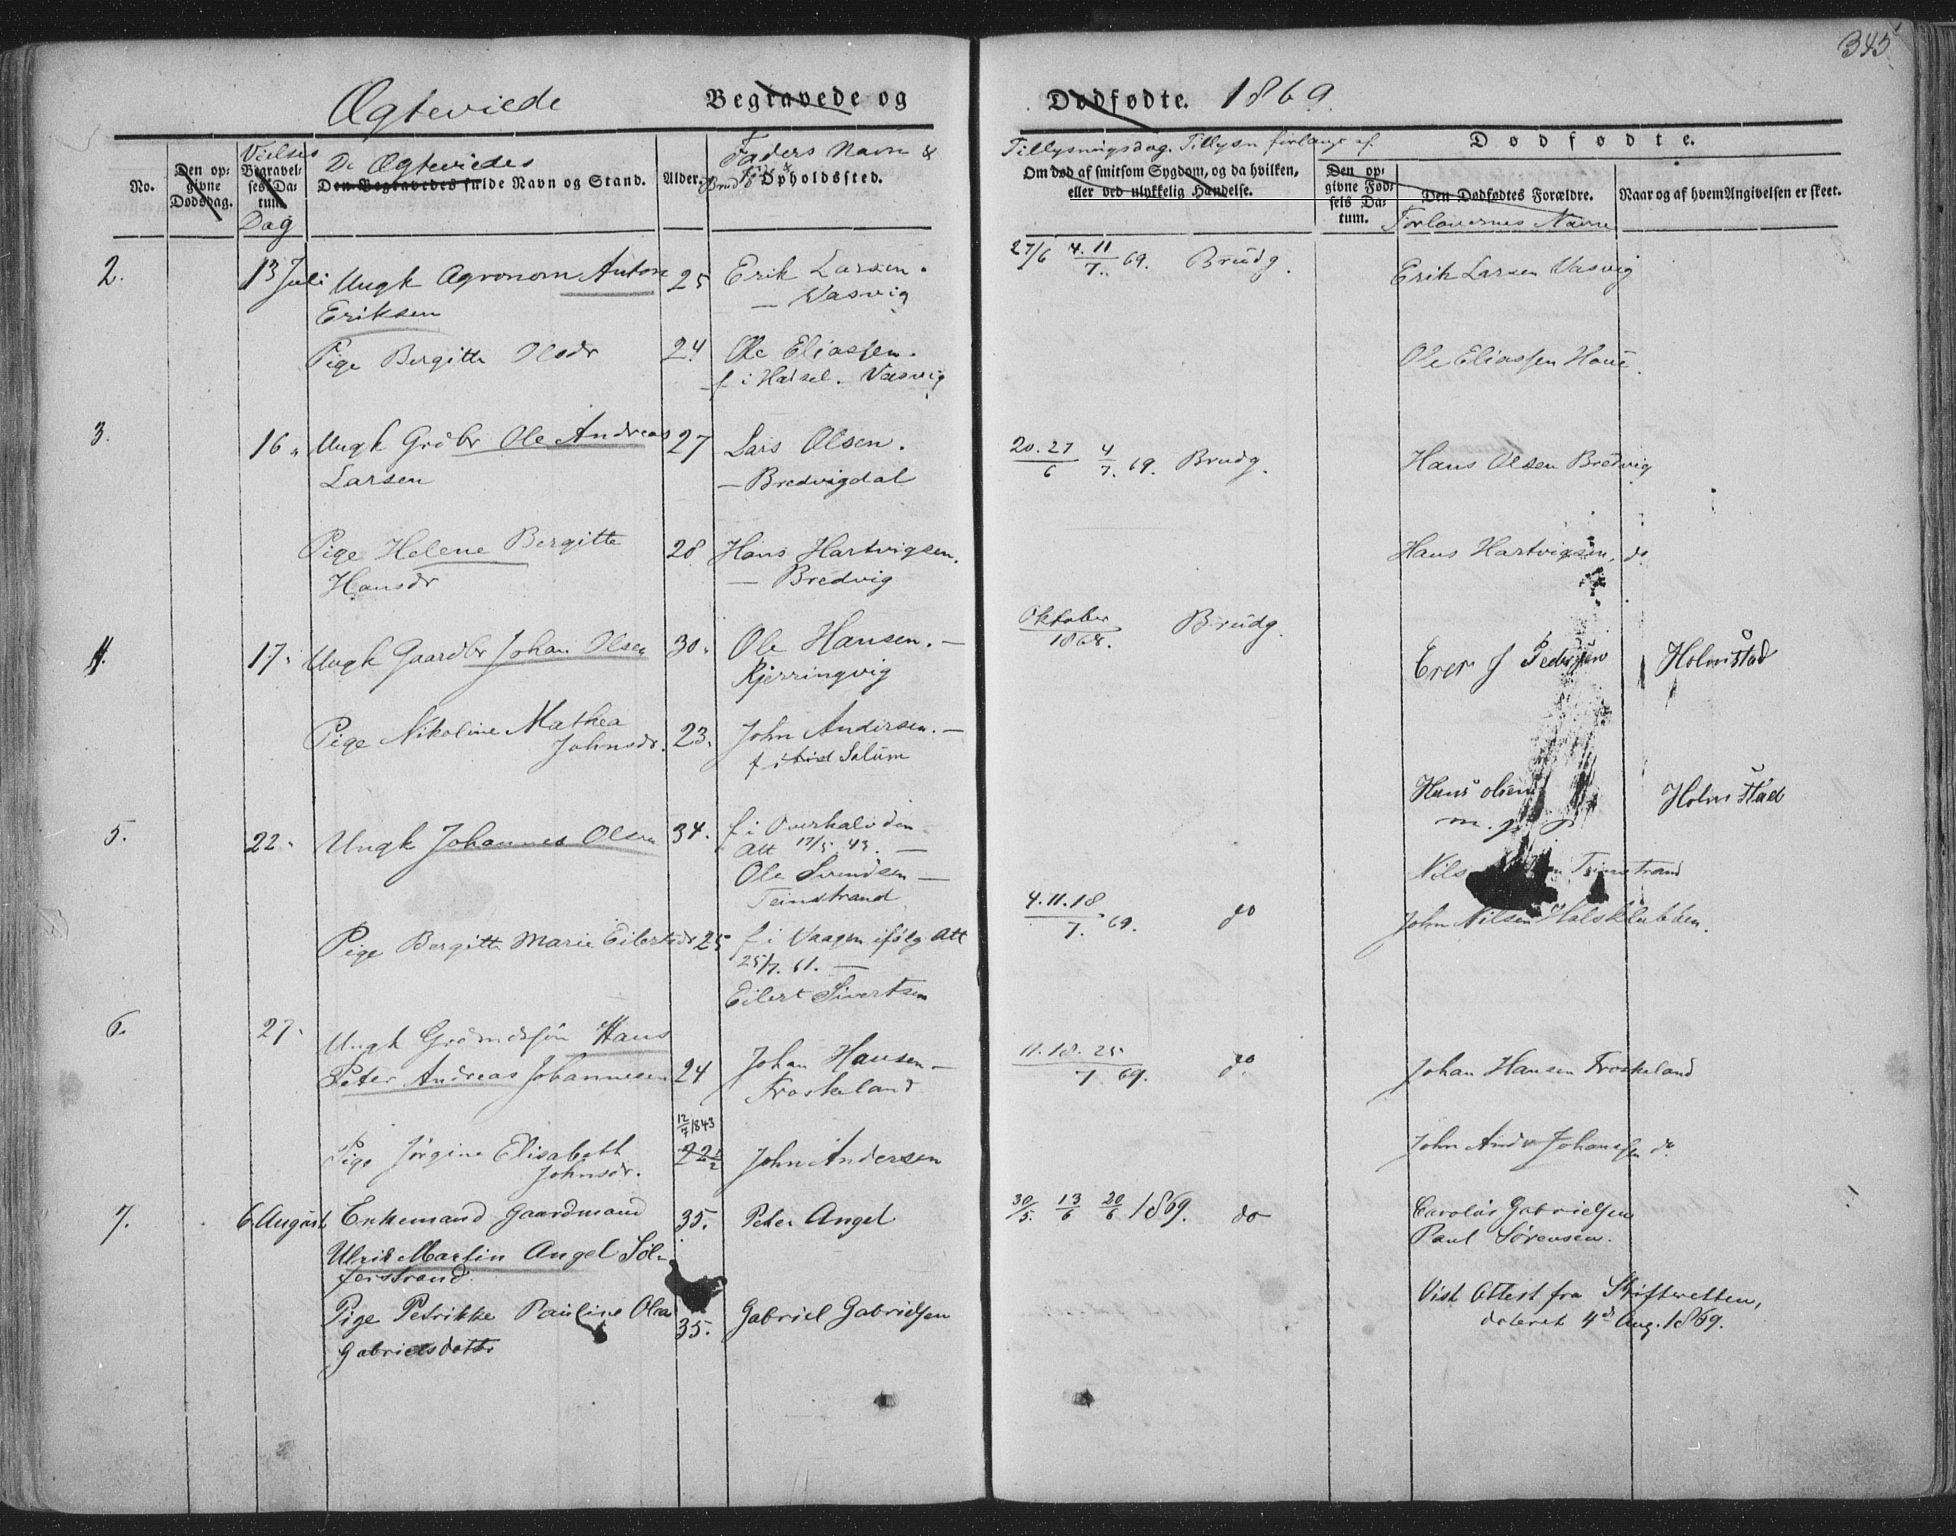 345
Ægteviede
Begravede og
Dødfødte. 1869.
No.
Den opgivne Dødsdag.
Vielses
Begravelses Datum.
Dag
De Ægteviedes
Den Begravedes fulde Navn og Stand.
Alder.
Faders Navn &
Opholdssted.
Tillysningsdag. Tillysn forlangt af
Om død af smitsom Sygdom, og da hvilken,
eller ved ulykkelig Hændelse.
Dødfødte.
Den opgivne Fødsels Datum.
Den Dødfødtes Forældre.
Forlovernes Navne
Naar og af hvem Angivelsen er skeet.
2. 13 Juli Ungk Agronom Anton 25 Erik Larsen. 27/6 4.11/7. 69. Brudg. Erik Larsen Vasvig
Eriksen — Vasvig
Pige Bergitte Olsdr 24 Ole Eliassen. Ole Eliassen Haue.
f i Hadsel. Vasvig
3. 16 „ Ungk Grdbr Ole Andreas 27 Lars Olsen. 20.27/6 4/7. 69. Brudg. Hans Olsen Bredvig
Larsen — Bredvigdal
Pige Helene Bergitte 28 Hans Hartvigsen. Hans Hartvigsen, do
Hansdr — Bredvig
4. 17 „ Ungk Gaardbr Johan Olsen 30. Ole Hansen. — Oktober/1868. Brudg. Erer J Pedersen Holmstad
Kjerringvig
Pige Nikoline Mathea 23. John Andersen. —
Johnsdr. Salum
Hans Olsen Holmstad
m. p. p.
5. 22. Ungk Johannes Olsen 34. f i Overhalvden
Att 17/5 43. —
Ole Svendsen — Teinstrand
Teinstrand
4.11.18/7. 69. do John Nilsen Halsklubben.
Pige Bergitte Marie Eilertsdr 25 f i Vaagen ifølg Att
25/7. 61. —
Eilert Sivertsen
6. 27. Ungk Grdmdssøn Hans
Peter Andreas Johannesen 24 Johan Hansen — 11.18.25/7. 69. do. Johan Hansen Froskeland
Froskeland
12/7 1843
Pige Jørgine Elisabeth 22½ John Andersen John Andr Johanssen do
Johnsdr.
7. 6 August Enkemand Gaardmand 35. Peter Angel 30/5. 13/6 20/6 1869. do Carolus Gabrielsen
Paul Sørensen.
Ulrik Martin Angel
Pige Petrikke Pauline Olea 35. Gabriel Gabrielsen Vist Attest fra Skifteretten,
dateret 4de Aug. 1869.
Gabrielsdatter